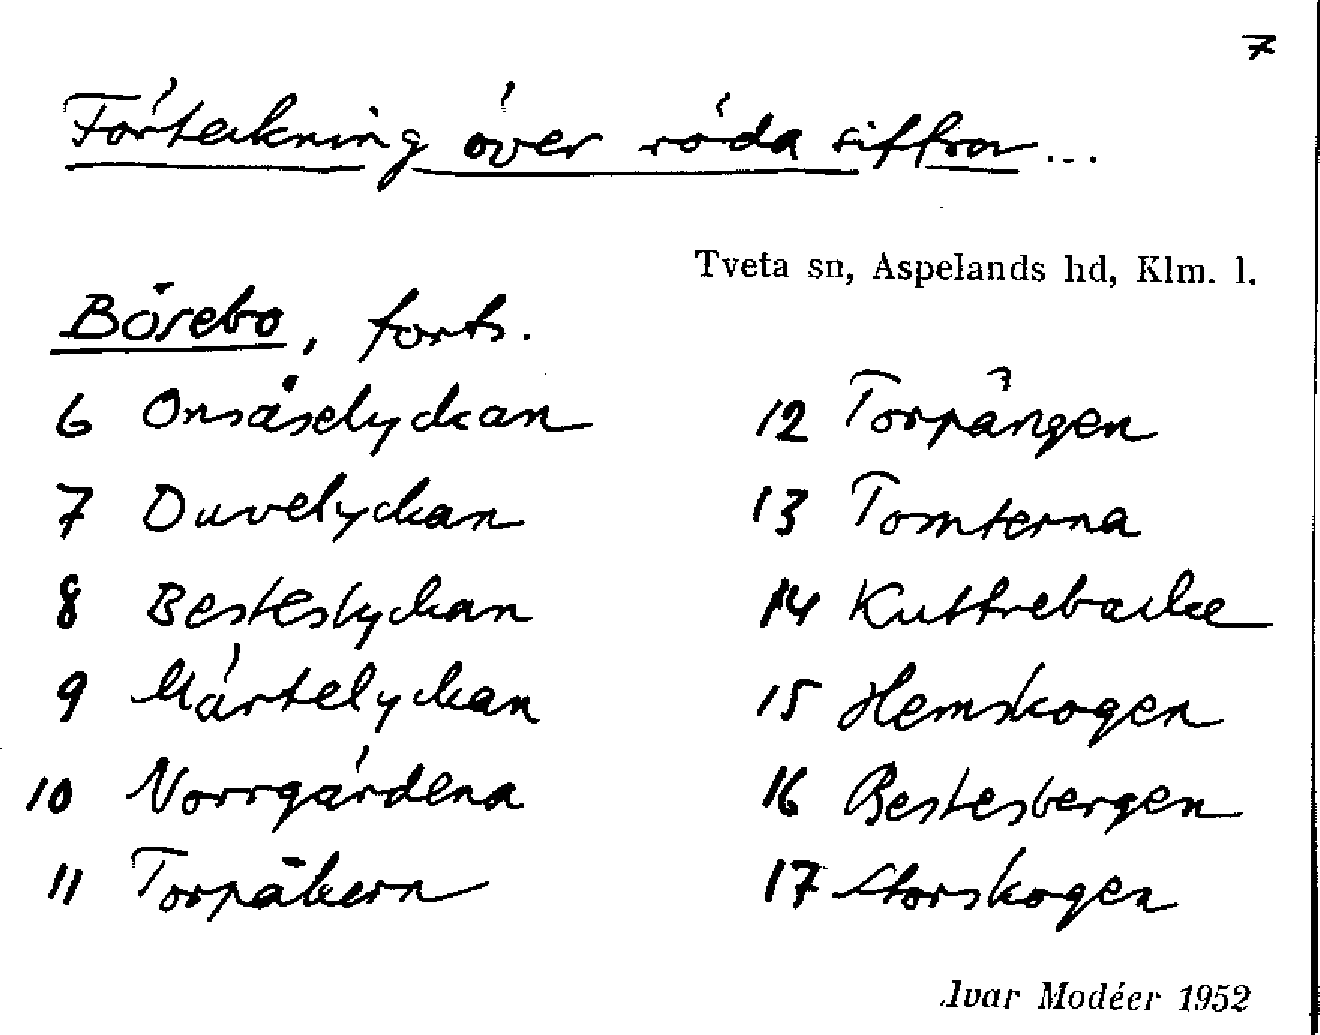 7
Förteckning över röda siffror...
Tveta sn, Aspelands hd, Klm. l.
Börebo, forts.
6 Onsåselyckan
7 Duvelyckan
8 Besteslyckan
9 Mårtelyckan
10 Norrgårdena
11 Torpåkern
12 Torpängen
13 Tomterna
14 Kuttrebacke
15 Hemskogen
16 Bestesbergen
17 Storskogen
Ivar Modéer 1952